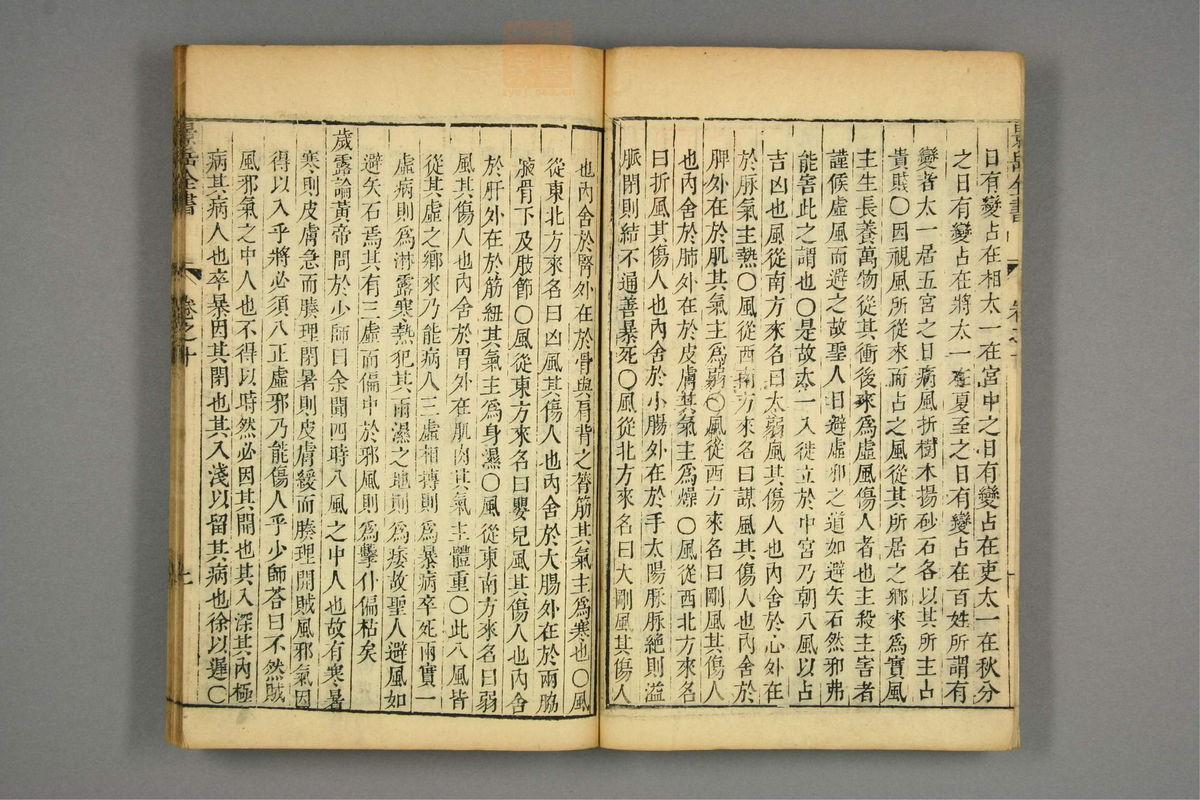 日有變占在相太一在宮中之日有變占在吏太一在秋分
之日有變占在將太一在夏至之日有變占在百姓所謂有
變者太一居五宮之日病風折樹木揚砂石各以其所主占
貴賤〇因視風所從來而占之風從其所居之鄉來爲實風
主生長養萬物從其衝後來爲虛風傷人者也主殺主害者
謹候虛風而避之故聖人日避虛邪之道如避矢石然邪弗
能害此之謂也〇是故太一入徙立於中宮乃朝八風以占
吉凶也風從南方來名曰大弱風其傷人也內舍於心外在
於脉氣主熱〇風從西南方來名曰謀風其傷人也內舍於
脾外在於肌其氣主爲弱〇風從西方來名曰剛風其傷人
也內舍於肺外在於皮膚其氣主爲燥〇風從西北方來名
曰折風其傷人也內舍於小腸外在於手太陽脉脉絶則溢
脈閉則結不通善暴死〇風從北方來名曰大剛風其傷人
景岳全書
卷之十
也內舍於腎外在於骨與肩背之膂筋其氣主爲寒也〇風
從東北方來名曰凶風其傷人也內舍於大腸外在於兩脇
腋骨下及肢節〇風從東方來名曰嬰兒風其傷人也內舍
於肝外在於筋紐其氣主爲身濕〇風從東南方來名曰弱
風其傷人也內舍於胃外在肌肉其氣主體重〇此八風皆
從其虛之鄉來乃能病人三虛相摶則爲暴病卒死兩實一
虛病則爲淋露寒熱犯其雨濕之地則爲痿故聖人避風如
避矢石焉其有三虛而偏中於邪風則爲擊仆偏枯矣
歲露論黃帝問於少師曰余聞四時八風之中人也故有寒暑
寒則皮膚急而腠理閉暑則皮膚緩而腠理開賊風邪氣因
得以入乎將必須八正虛邪乃能傷人乎少師荅曰不然賊
風邪氣之中人也不得以時然必因其開也其入深其內極
病其病人也卒暴因其閉也其入淺以留其病也徐以遲〇
景岳全書
卷之十
七